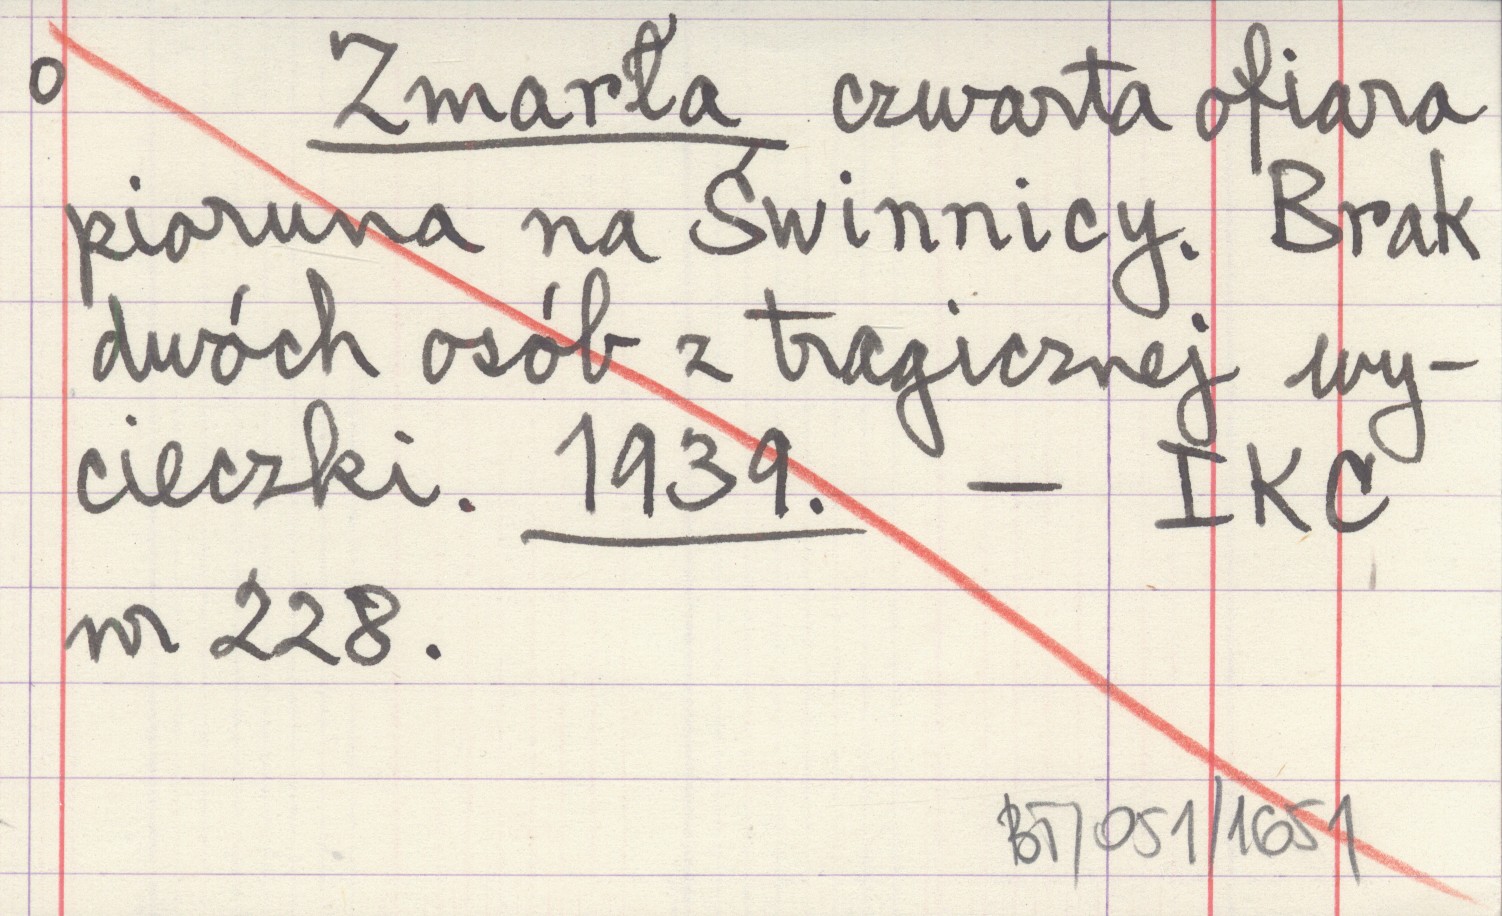 o Zmarła czwarta ofiara
pioruna na Świnnicy. Brak
dwóch osób z tragicznej wy-
cieczki. 1939. — IKC
nr 228.
BT/051/1651